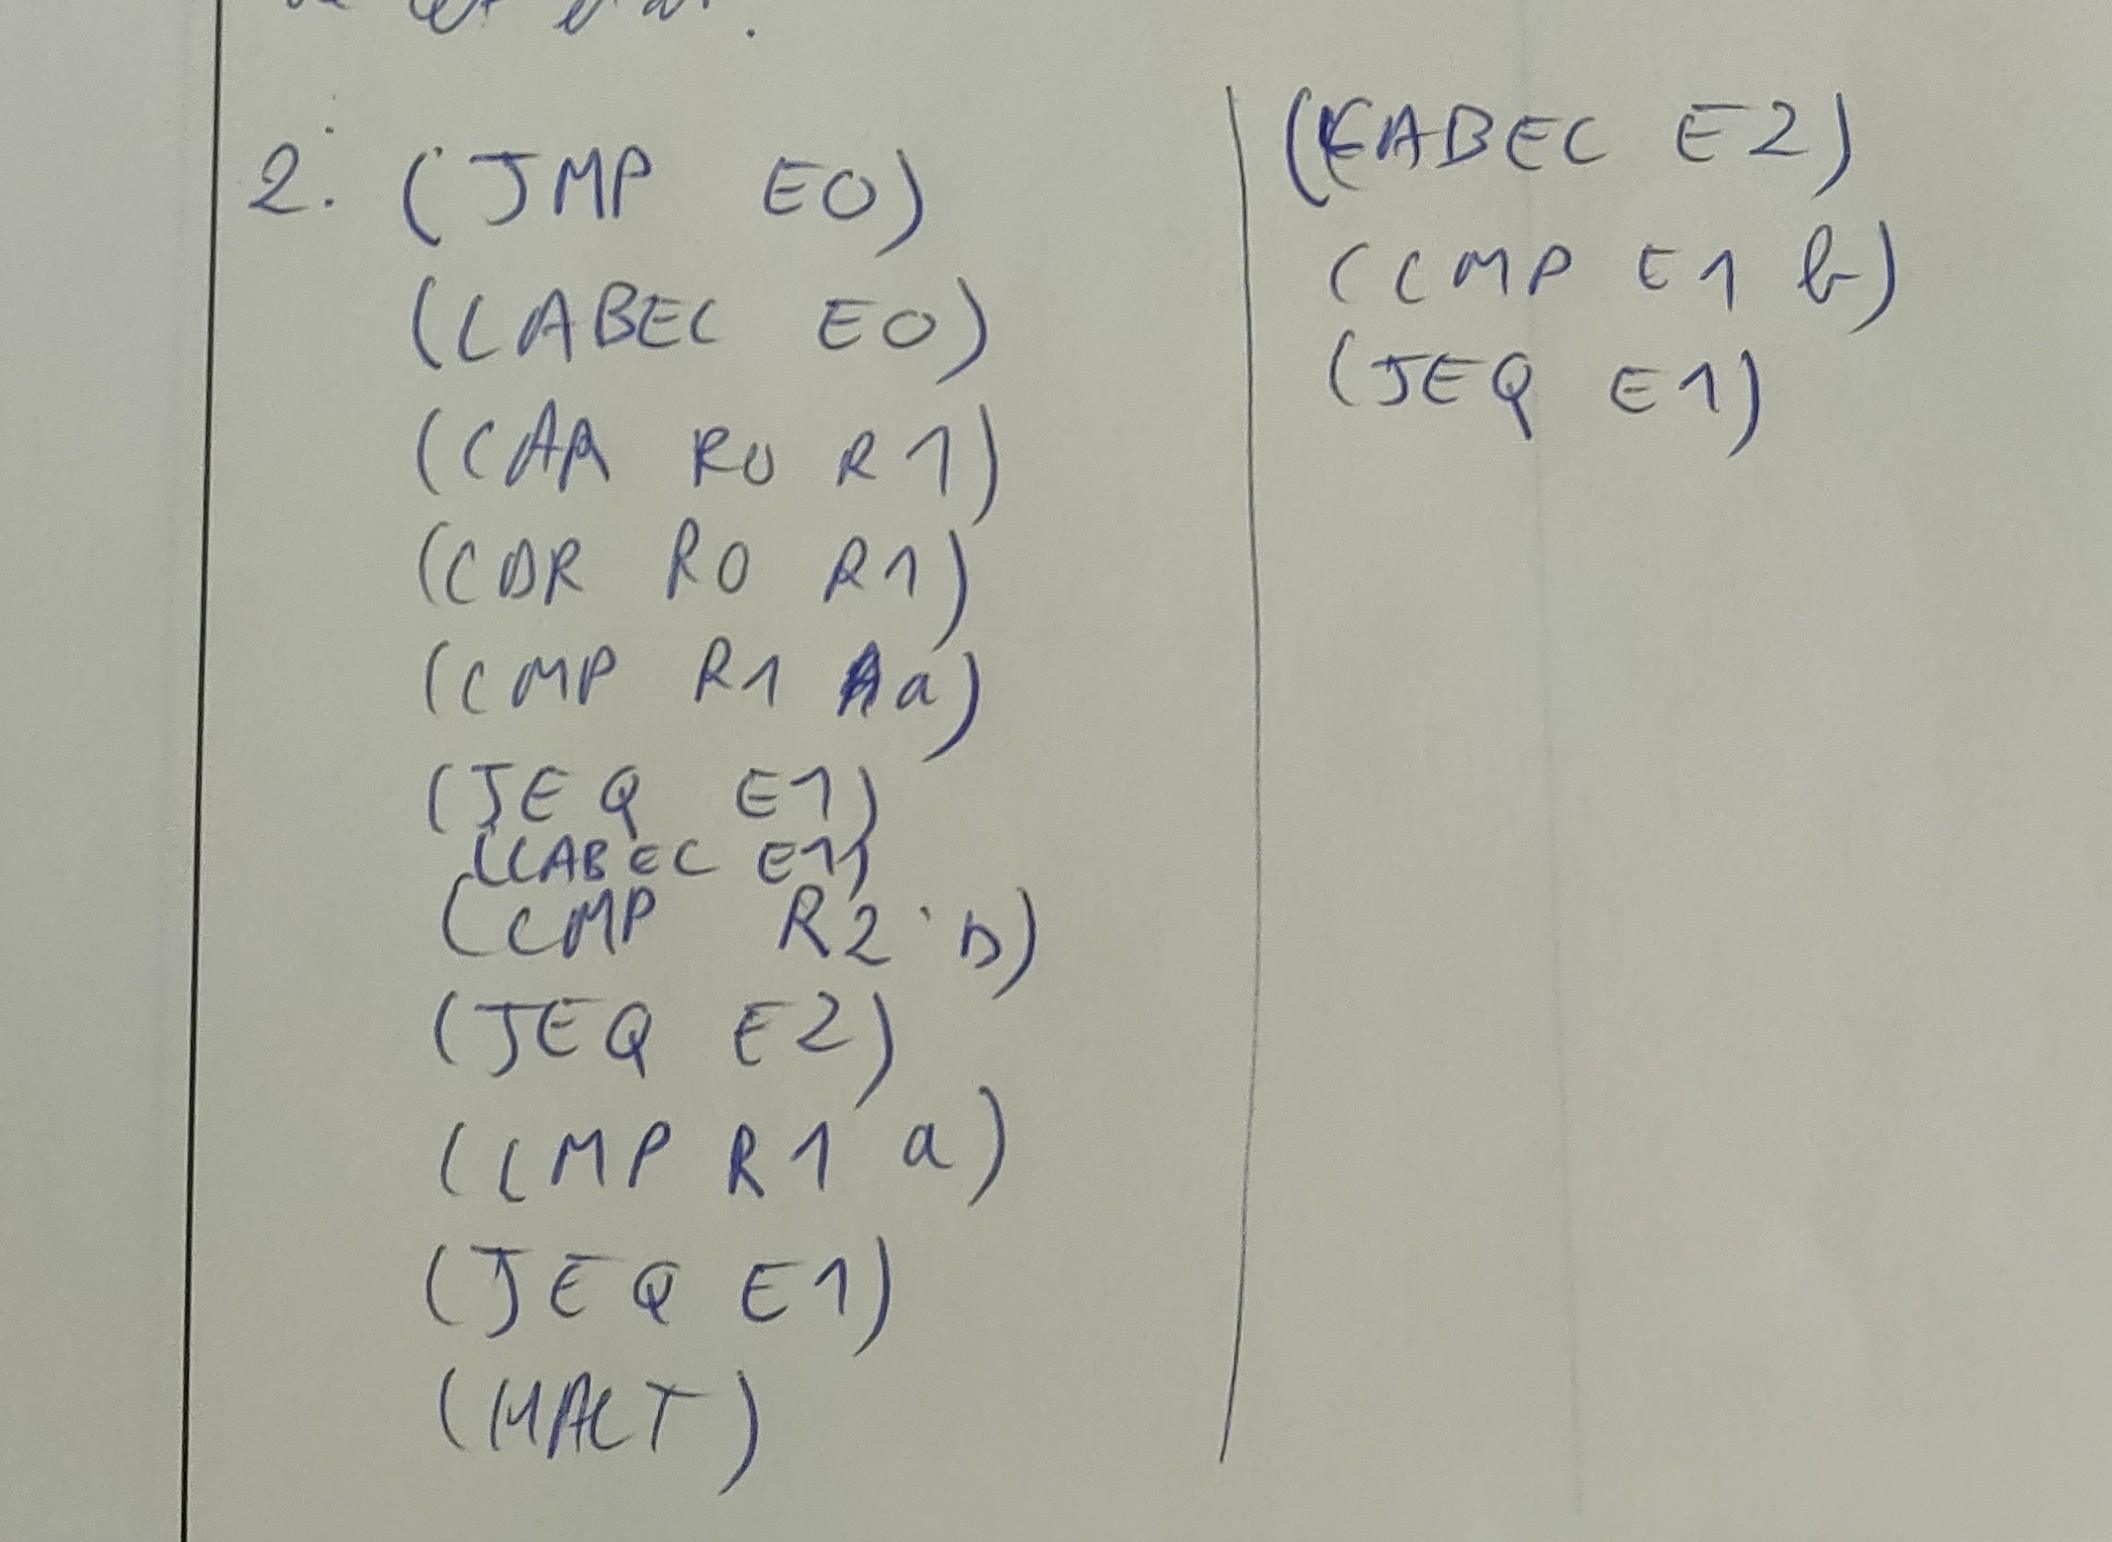 2. (JMP E0)
(LABEL E0)
(CAR R0 R1)
(CDR R0 R1)
(CMP R1 a)
(JEQ E1)
(LABEL E1)
(CMP R2 b)
(JEQ E2)
(CMP R1 a)
(JEQ E1)
(HALT)
(LABEL E2)
(CMP E1 b)
(JEQ E1)